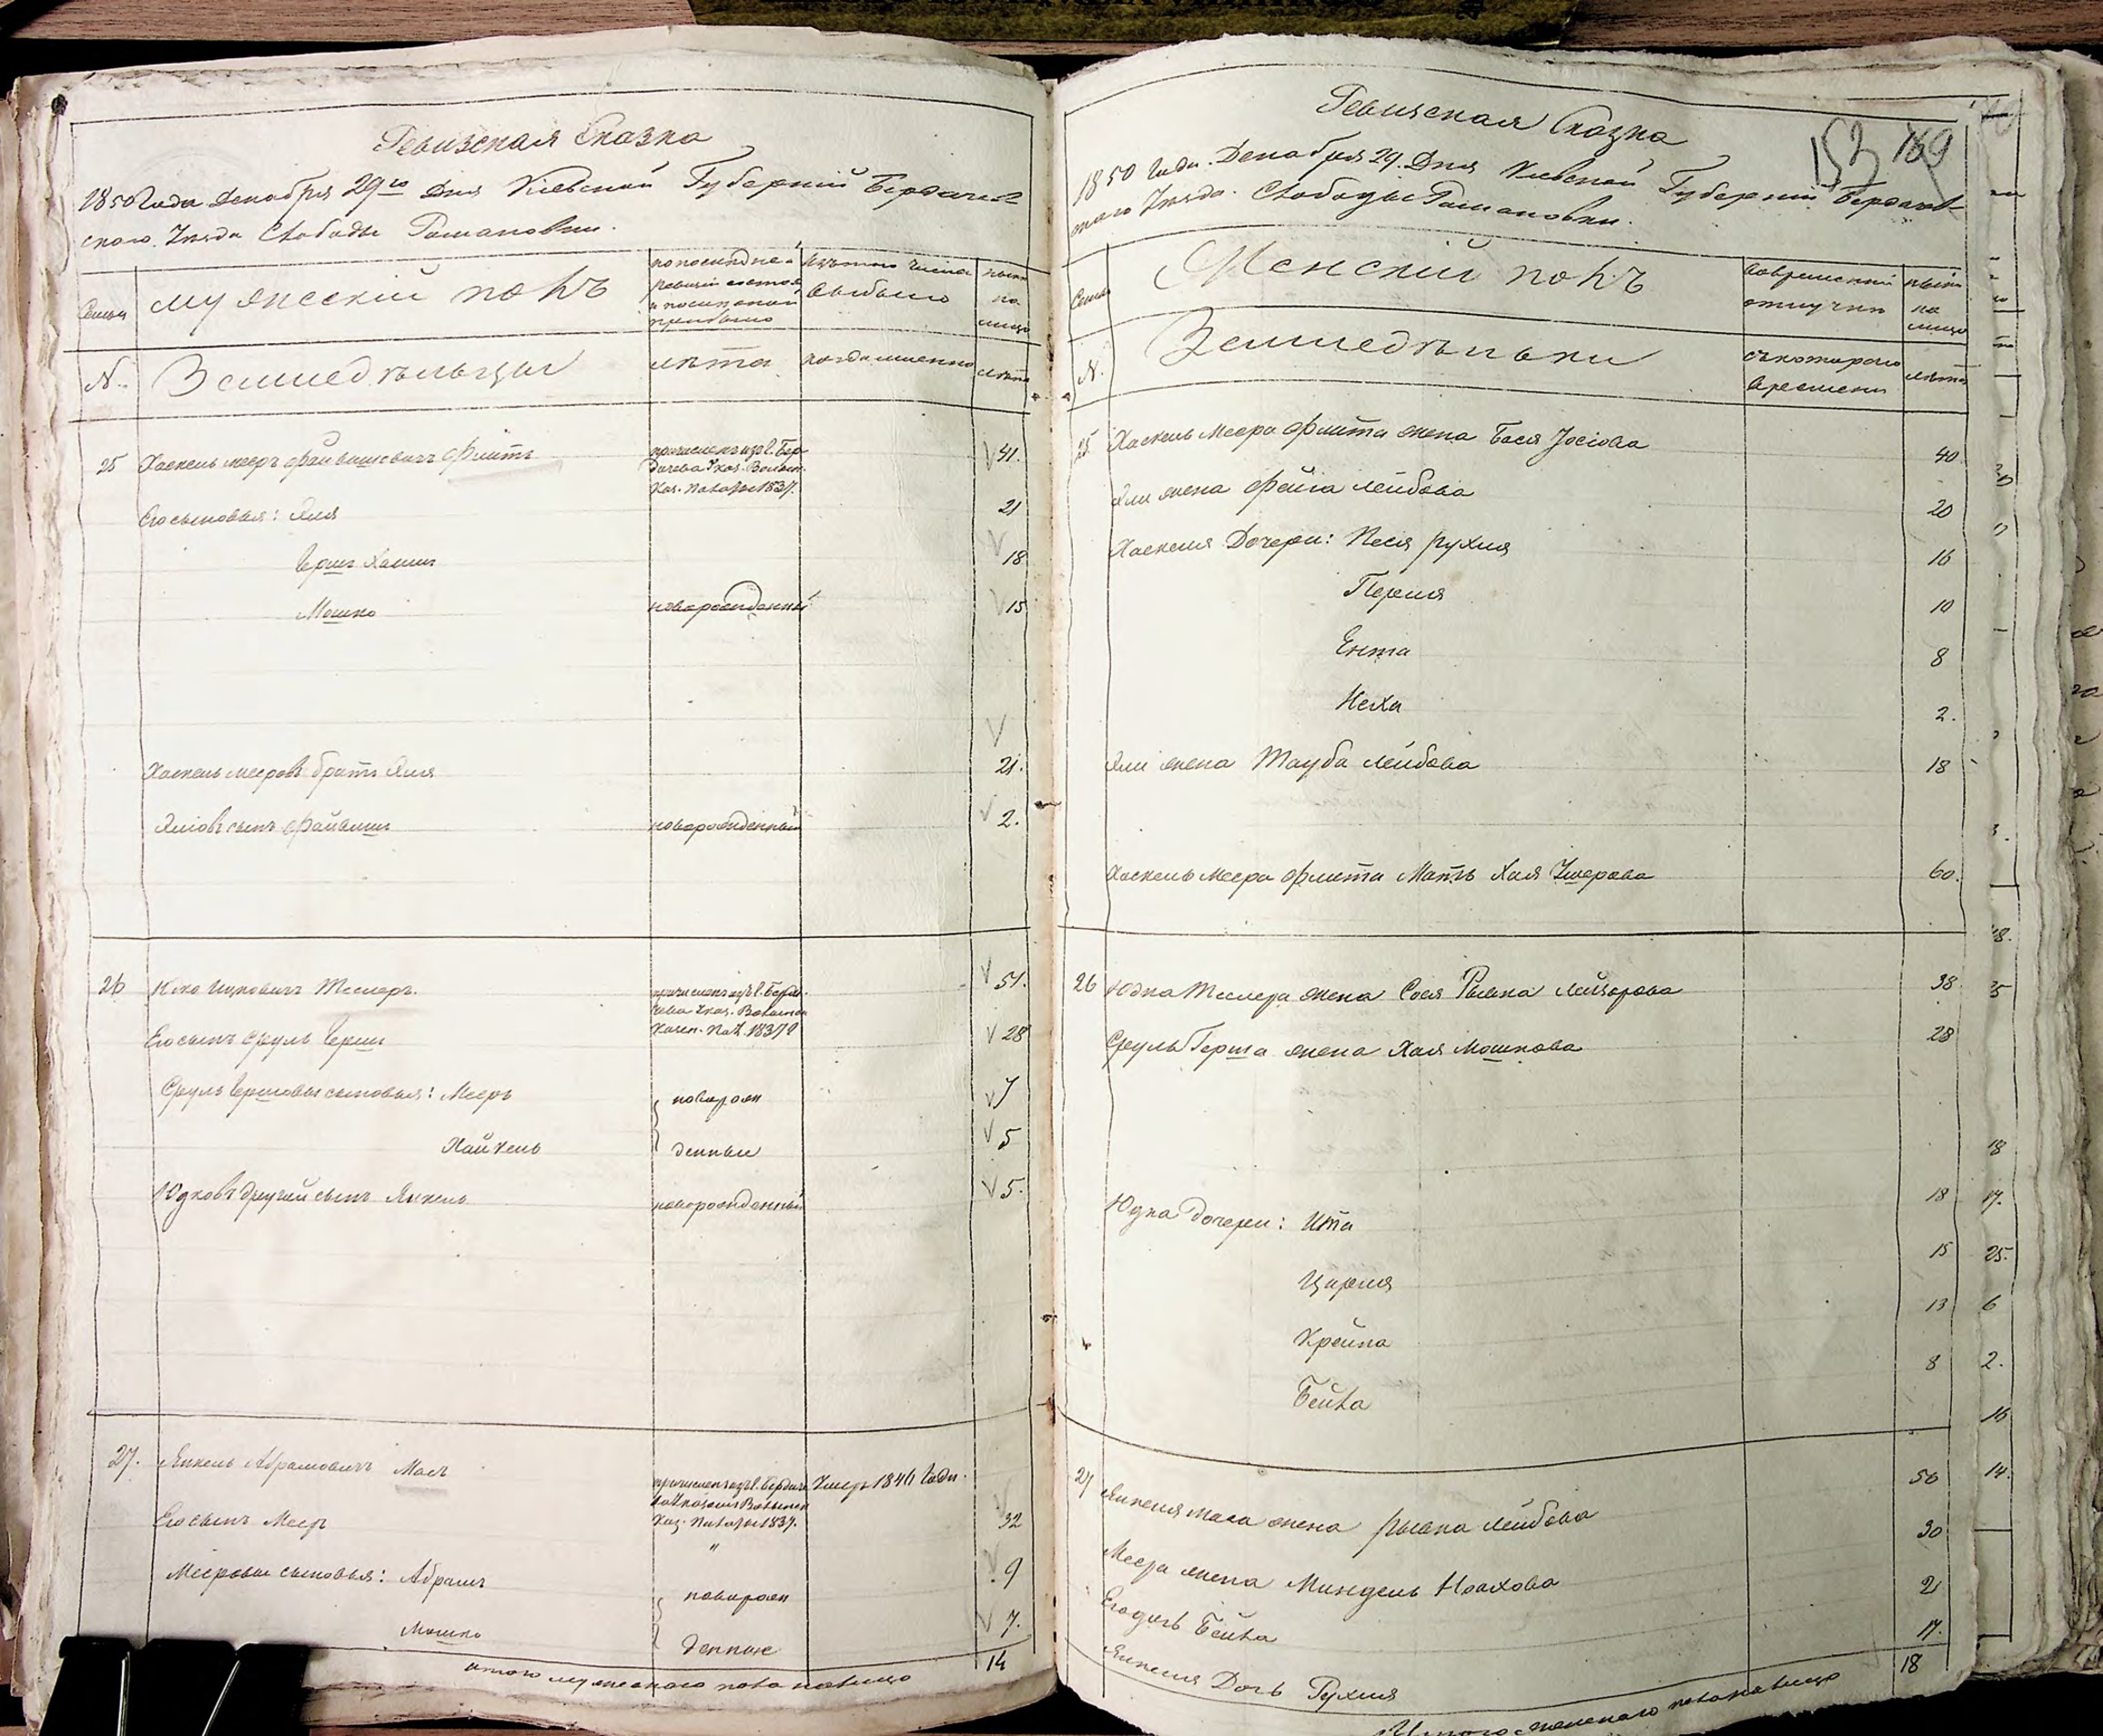 Ревизская Сказка
1850 Года Декабря 29го Дня Кіевской Губерніи Бердичев
скаго Уезда Слободы Романовки.
Семьи
Мужескій полъ
по последней
ревизіи состояло
и после оной
прибыло
Изъ того числа
выбыло
ныне
на
лицо
№.
Земледельцы
лета
когда именно
лета
25 Хаскель Мееръ Файвишовичъ Флитъ
причисленъ изъ г. Бер
дичева
1837.
41.
Его сыновья: Эля 21
Гершъ Хаимъ 18
Мошко новорожденный 15
Хаскель Мееровъ братъ Эля 21.
Эліовъ сынъ Файвишъ новорожденный 2.
26 Ицковичъ Теслеръ.
причисленъ изъ г. Берди
чева
1837
51.
Его сынъ Сруль Гершъ 28
Сруль Гершовы сыновья: Мееръ новорож 7
Хайкель денные 5
Юдковъ другой сынъ Янкель новорожденный 5.
27. Янкель Абрамовичъ Маслъ
причисленъ изъ г. Бердиче
1837.
Умеръ 1846 Года.
Его сынъ Меер " 32
Мееровы сыновья: Абрамъ новорож 9
Мошко денные 7.
Итого мужескаго пола налицо 14
Ревизская Сказка
153 169
1850 Года Декабря 29. Дня Кіевской Губерніи Бердичев
скаго Уезда. Слободы Романовки.
Семьи
Женскій полъ
Во временной
отлучке
ныне
на
лицо
№.
Земледельки
съ котораго
времени
лета
25 Хаскель Меера Флита жена Бася Іосіова 40
Эли жена Фейга Лейбова 20
Хаскеля Дочери: Песя Рухля 16
Перля 10
Ента 8
Неха 2.
Эли жена Тауба Лейбова 18
Хаскель Меера Флита Мать Хая Ушерова 60.
26 Юдка Теслера жена Сося Рывка Лейзорова 38
Сруль Герша жена Хая Мошкова 28
Юдка дочери: Ита 18
Цирля 15
Крейна 13
Бейла 8
27 Янкеля Масла жена Рывка Лейбова 50
Меера жена Миндель Ноахова 30
Его дочь Бейла 2
Янкеля Дочь Рухля 17.
Итого женскаго пола налицо 18